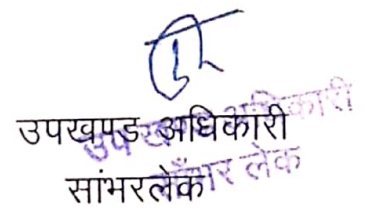 उपखण्ड अधिकारी
सांभरलेक
उपखण्ड अधिकारी
साँभर लेक